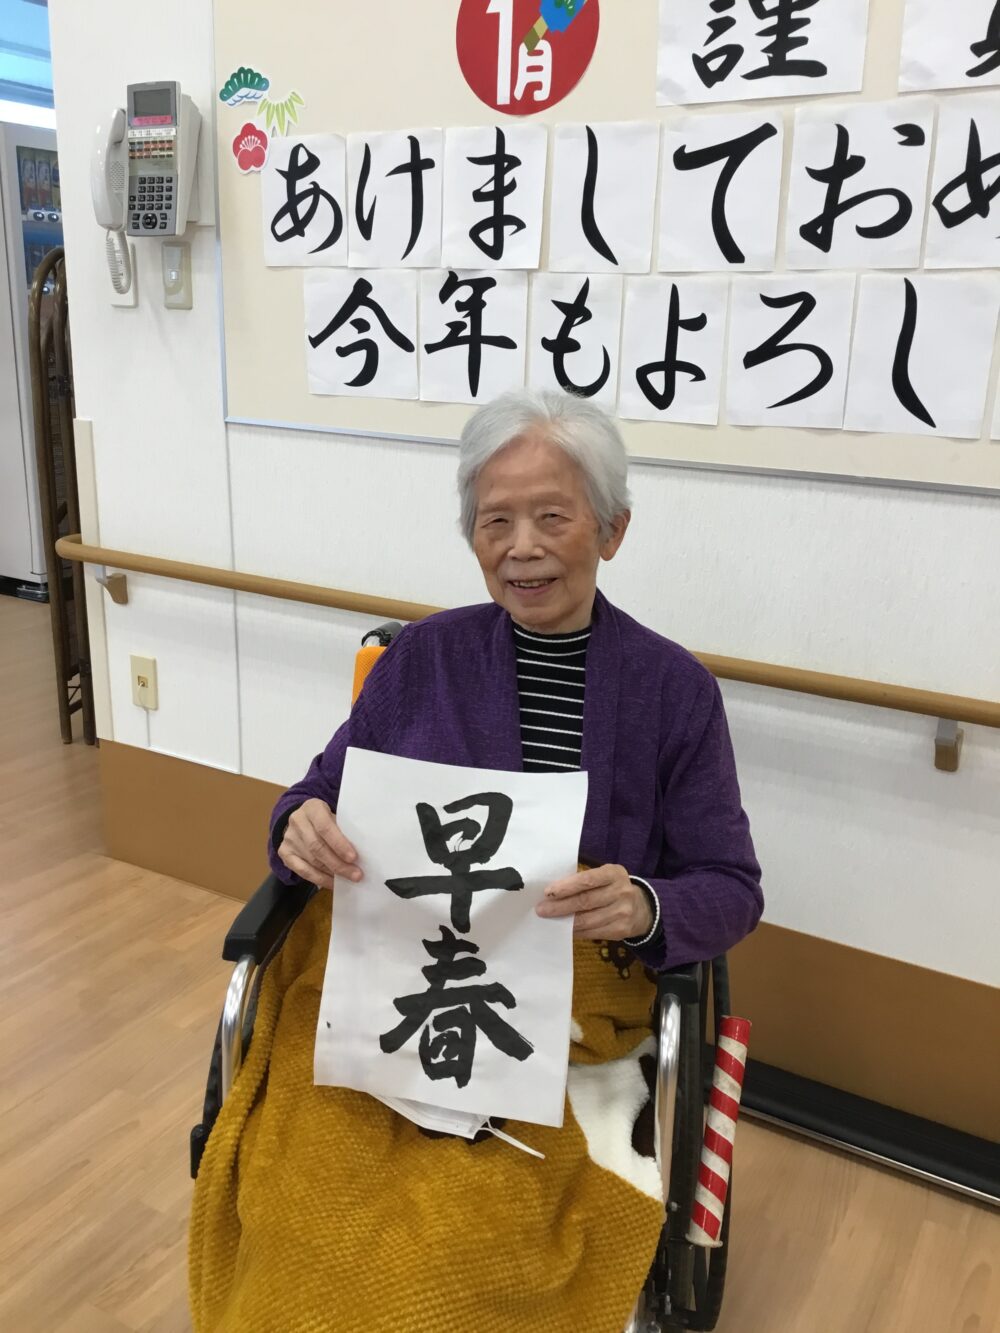 1月
謹
あけましてお
今年もよろし
早春